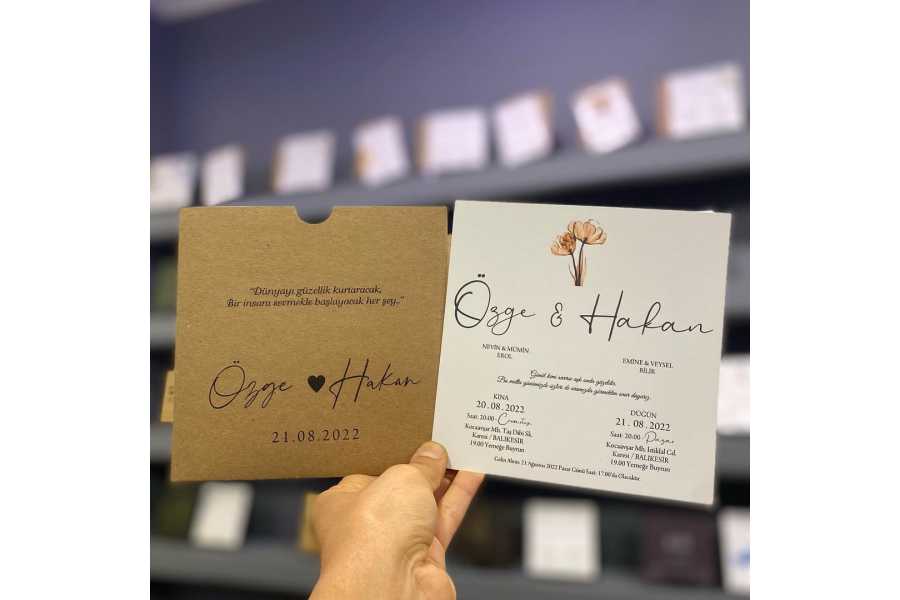 “Dünyayı güzellik kurtaracak,
Bir insanı sevmekle başlayacak her şey..”
Özge Hakan
21.08.2022
Özge & Hakan
NEVİN & MÜMİN
EROL
EMİNE & VEYSEL
BİLİR
Gönül kimi severse aşk onda güzeldir.
Bu mutlu günümüzde sizleri de aramızda görmekten onur duyarız.
KINA
20.08.2022
Saat: 20:00 - Cumartesi
Kocaavşar Mh. Taş Dibi Sk.
Karesi / BALIKESİR
19.00 Yemeğe Buyrun
DÜĞÜN
21.08.2022
Saat: 20:00 - Pazar
Kocaavşar Mh. İstiklal Cd.
Karesi / BALIKESİR
19.00 Yemeğe Buyrun
Gelin Alma: 21 Ağustos 2022 Pazar Günü Saat: 17.00'da Olacaktır